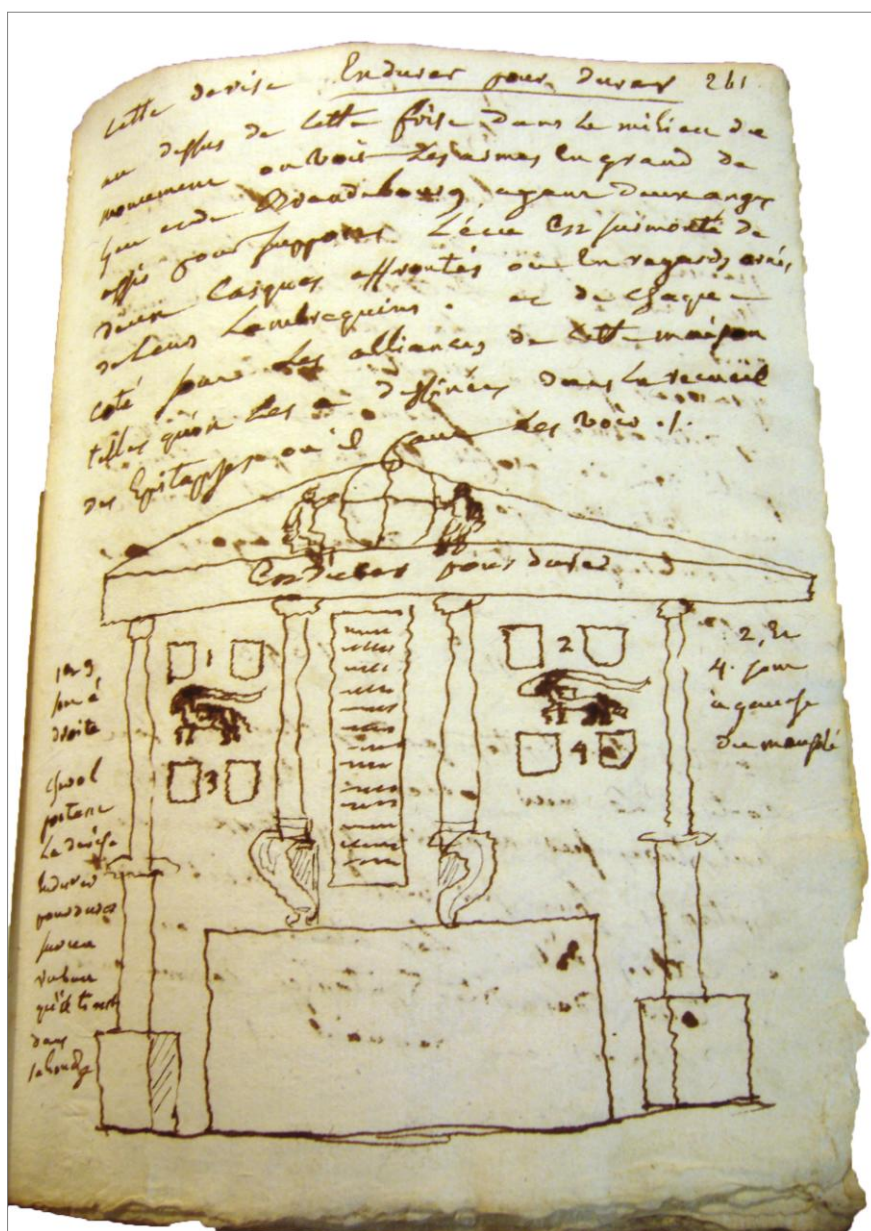 cette devise Endurer pour durer 261
au dessus de cette frise dans le milieu du
monument on voit les armes en grand de
de Brandebourg, ayant deux anges
assis pour supports. L'écu est surmonté de
deux casques affrontés ou en regards ornés
de leurs Lambrequins. et de chaque
coté sont les alliances de cette maison
telles qu'on les a dessinées dans le recueil
des Epitaphes ou il faut les voir ./.
Endurer pour durer
1 2
3 4
1 et 3
sont à
droite
2, et
4. sont
à gauche
du mausolé
portent
La devise
Endurer
pour durer
sur un
ruban
qu'ils tiennent
dans